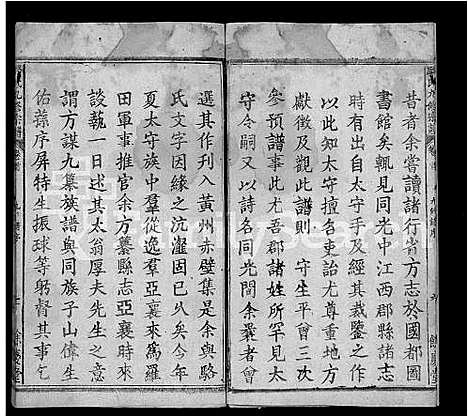 昔者余嘗讀諸行省方志於國都圖
書館矣輒見同光中江西郡縣諸志
時有出自太守手及經其裁鑒之作
以此知太守擅名吏治尤尊重地方
獻徵及觀此譜則 守生平曾三次
參預譜事尤吾郡諸姓所罕見太
守令嗣又以詩名同光間余曩者曾
選其作刊入黃州赤壁集余與駱
氏文字因緣之沆瀣固已久矣今年
夏太守族中羣從逸羣亞襄來篤羅
田軍事推官余方纂縣志亞襄時時
談蓺一日述其太翁厚夫先生之意
謂方謀九纂族譜與同族子山偉生
佑蓀序屏特生振球等躬督其事乞
FamilySearch